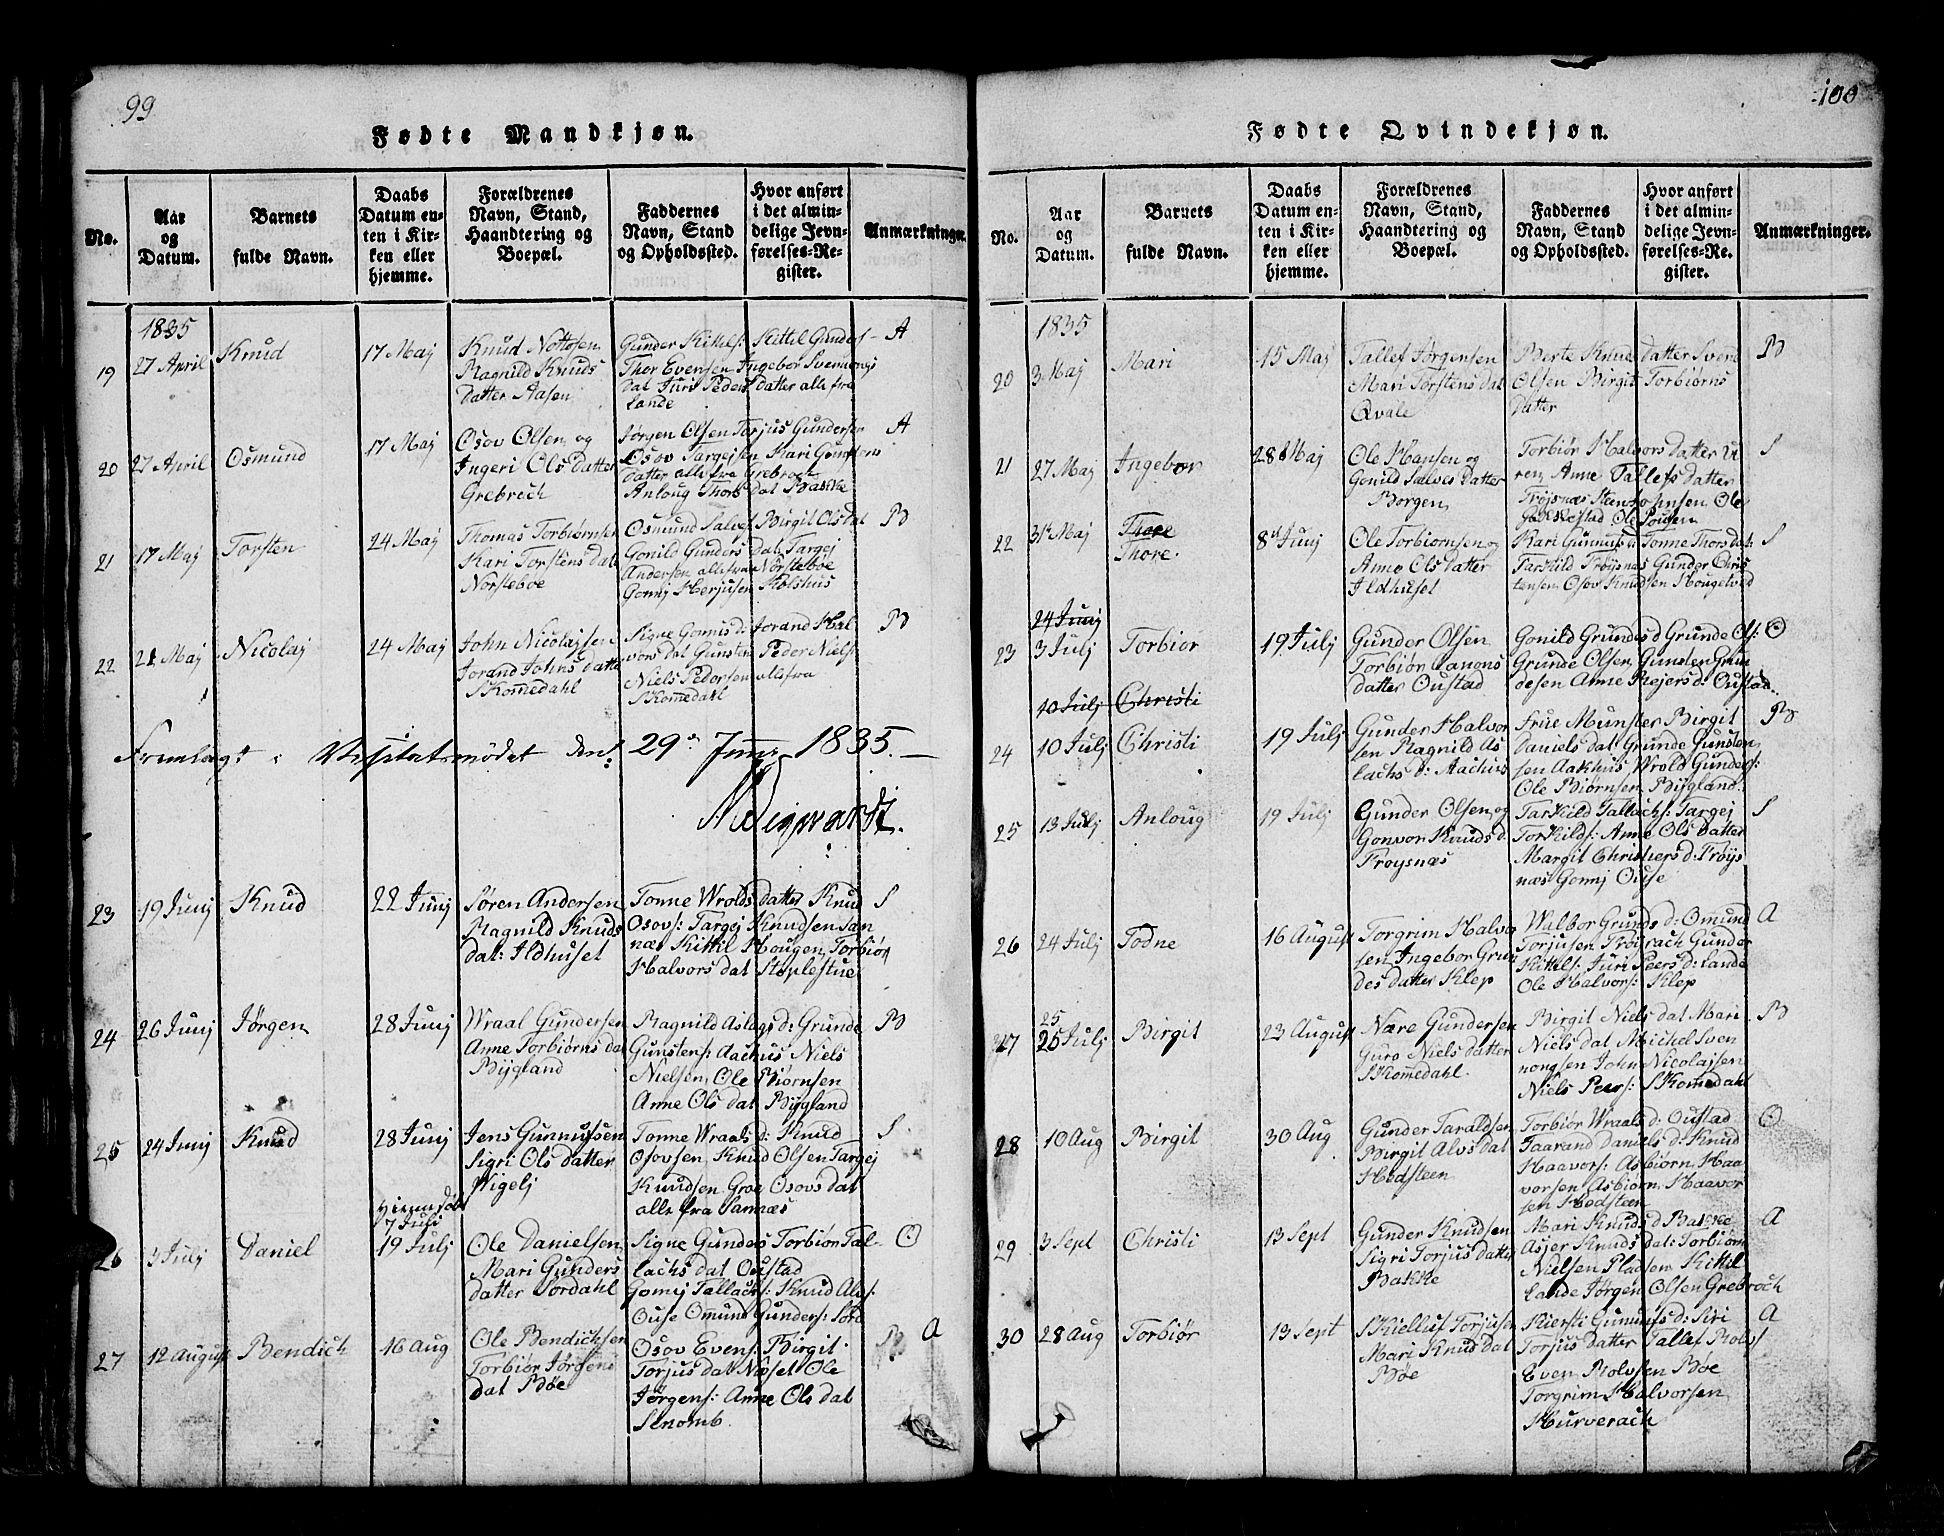 99
Fødte Mandkjøn.
No.
Aar
og
Datum.
Barnets
fulde Navn.
Daabs
Datum en-
ten i Kir-
ken eller
hjemme.
Forældrenes
Navn, Stand,
Haandtering og
Boepæl.
Faddernes
Navn, Stand
og Opholdssted.
Hvor anført
i det almin-
delige Jevn-
førelses-Re-
gister.
Anmærkninger.
1835
19
27 April
Knud
17 Maj
Knud Nottosen
Ragnild Knuds
datter Aasen
Gunder Kittels: Kittil Gunders
Thor Evensen Ingebor Svennungs
dat Juri Peders datter alle fra
Lande
A
20
27 April
Osmund
17 Maj
Osov Olsen og
Ingeri Ols datter
Grebroch
Jørgen Olsen Torjus Gundersen
Osov Targejsen Kari Gunders
datter alle fra Grebroch
Anloug Thors dat Bakke
A
21
17 Maj
Torsten
24 Maj
Thomas Torbiørnsen
Kari Torstens dat
Norsteboe
Osmund Salves: Birgit Ols dat
Gonild Gunders dat: Targej
Andersen alle fra Norsteboe
Gonnj Herjusen Holshus
B
22
21 Maj
Nicolaj
24 Maj
John Nicolajsen
Jorand Johns datter
Skomedahl
Signe Gonnis d: Jorand Hal
vors dat Gunsten Peder Niels
Niels Pedersen alle fra
Skomedahl
B
Fremlagt i Visitatsmødet den 29 Juni 1835.
23
19 Junj
Knud
22 Junj
Søren Andersen
Ragnild Knuds
dat: Ildhuset
Tonne Wrolds datter Knud
Osovs: Targej Knudsen San
næs Kittil Hougen Torbiør
Halvors dat Stoplestue
S
24
26 Junj
Jørgen
28 Junj
Wraal Gundersen
Anne Torbiørns dat
Bijgland
Ragnild Aslags d: Grunde
Gunstens: Aachus Niels
Nielsen, Ole Biørnsen
Anne Ols dat Bijgland
B
25
24 Junj
Knud
28 Junj
Jens Gunnufsen
Sigri Ols datter
Wigelj
Tonne Wraals d: Knud
Osovsen Knud Olsen Targej
Knudsen Groe Osovs dat
alle fra Sannæs
S
26
3 Julj
Daniel
7 Juli
19 Julj
Ole Danielsen
Mari Gunders
datter Sordahl
Signe Gunders Torbiør Tal-
lachs dat Oustad
Gonnj Tallachs: Knud Alvs:
Ouse Omund Gunders: Sord
O
27
12 August
Bendich
16 Aug
Ole Bendichsen
Torbiør Jørgens
dat Bøe
Osov Evens: Birgit
Torjus dat Næset Ole
Jørgens: Anne Ols dat
Senomb.
B A
100
Fødte Qvindekjøn.
No.
Aar
og
Datum.
Barnets
fulde Navn.
Daabs
Datum en-
ten i Kir-
ken eller
hjemme.
Forældrenes
Navn, Stand,
Haandtering og
Boepæl.
Faddernes
Navn, Stand
og Opholdssted.
Hvor anført
i det almin-
delige Jevn-
førelses-Re-
gister.
Anmærkninger.
1835
20
3 Maj
Mari
15 Maj
Tallef Jørgensen
Mari Torstens dat
Qvale
Berte Knue datter Svere
Olsen Birgit Torbiørns
datter
B
21
27 Maj
Ingebor
28 Maj
Ole Hansen og
Gonild Salves datter
Borgen
Torbiør Halvors datter U
ren, Anne Tallefs datter
Frøjsnæs Sten Johnsen Ole
S
22
31 Maj
Thore
Thore.
8 Junj
Ole Torbiornsen og
Anne Ols datter
Ildhuset
Kari Gunnufs d: Tonne Thors dat:
Tarkild Frøysnæs Gunder Chris
tensen Osov Knudsen Hougetved
S
24 Junj
23
3 Julj
Torbior
19 Julj
Gunder Olsen
Torbiør Canons
datter Oustad
Gonild Grundes d Grunde Ols:
Grunde Olsen, Gunsten Grun
desen Anne Rejers d: Oustad.
O
10 Julj
Christi
24
10 Julj
Christi
19 Julj
Gunder Halvor
sen Ragnild As
lachs d: Aachus
Frue Munster Birgit
Daniels dat Grunde Gunsten
sen Aakhus Wrold Gunders:
Ole Biørnsen, Bijgland.
B
25
13 Julj
Anloug
19 Julj
Gunder Olsen og
Gonvor Knuds d:
Froysnæs
Tarkild Tallachs: Targej
Torkilds: Anne Ols datter
Margit Christiers d: Frøys
næs Gonnj Ouse
S
26
24 Julj
Todne
16 August
Torgrim Halvor
sen Ingebor Grun
des datter Klep
Walbor Grunds d: Omund
Torjusen Frøijrach Gunder
Kittels: Juri Peers d: Lande
Ole Halvors: Klep
A
27
25
25 Julj
Birgit
23 August
Nære Gundersen
Guro Niels datter
Skomedahl.
Birgit Niels dat Mari
Niels dat Michel Sven
nongsen John Nicolajsen
Niels Peers: Skomedahl
B
28
10 Aug
Birgit
30 Aug
Gunder Taraldsen
Birgit Alvs dat
Hodsteen
Torbiør Wraals d: Oustad
Taarand Daniels d: Knud
Haavors: Asbiørn Haa
vorsen Asbiørn Haavor
sen Hodsteen
O
29
3 Sept
Christi
13 Sept
Gunder Knudsen
Sigri Torjus datter
Bakke
Mari Knuds d Bakke
Asjer Knuds dat: Torbiørn
Nielsen Pladsen Kittil
Lande Jørgen Olsen Grebroch
A
30
28 Aug
Torbiør
13 Sept
Skiellus Torjusen
Mari Knuds dat
Bøe
Kiersti Gunnufs d: Siri
Torjus datter Tallef Rolvs
Even Rolvsen Bøe
Torgrim Halvorsen
Hurverach
A